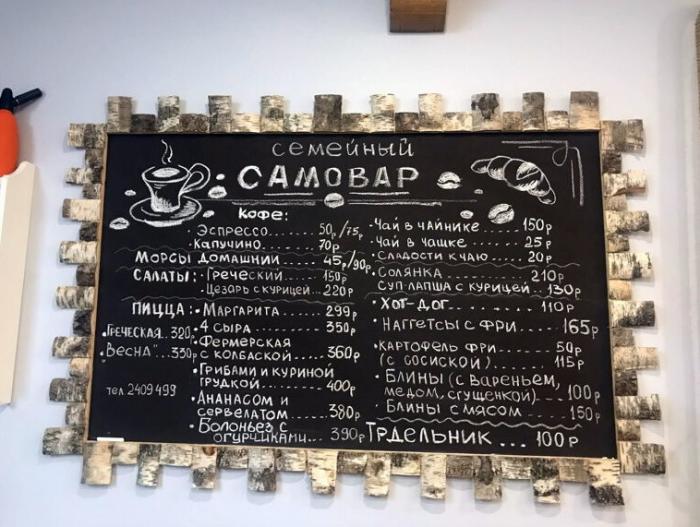 семейный
САМОВАР
Кофе:
Эспрессо........50р/75р
·Капучино.....70р
Морсы домашний.....45р/90р.
Салаты:·Греческий.....150р
·Цезарь с курицей...220р
Пицца:·Маргарита......299р
·4 сыра........350р
·Фермерская
с колбаской...360р
·Грибами и куриной
грудкой........400р
·Ананасом и
сервелатом...380р
·Болоньез с
огурчиками...390р
·Греческая...320р
·"Весна"...330р
тел 2409499
·Чай в чайнике.....150р
·Чай в чашке......25р
·Сладости к чаю....20р
·Солянка........210р
Суп-лапша с курицей..130р
·Хот-дог........110р
·Наггетсы с фри....165р
·Картофель фри....50р
(с сосиской)......115р
·Блины (с вареньем,
медом, сгущенкой)...100р
·Блины с мясом....150р
Трдельник... 100р